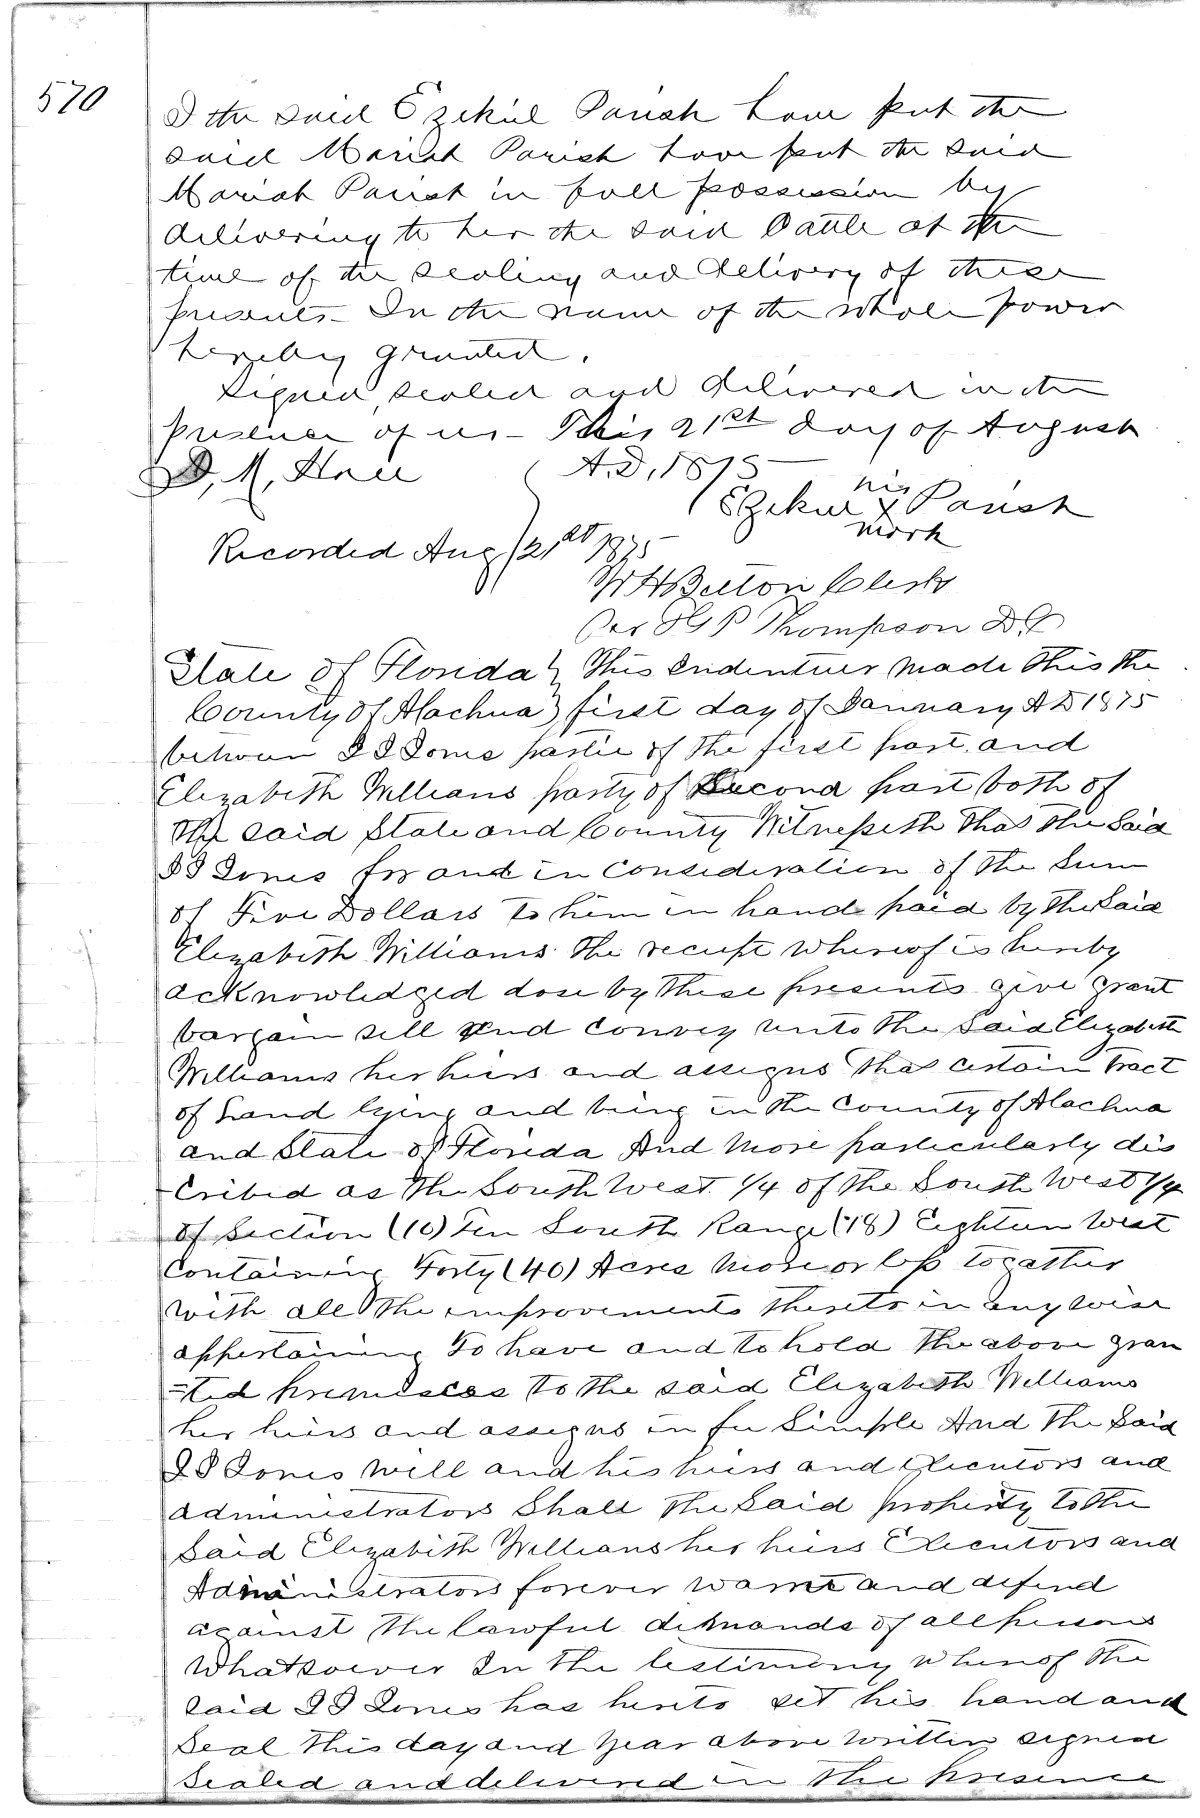 570
I the said Ezekiel Parish have put the
said Mariah Parish have put the said
Mariah Parish in full possession by
delivering to her the said Cattle at the
time of the sealing and delivery of these
presents – In the name of the whole power
hereby granted.
Signed, sealed and delivered in the
presence of us – This 21st day of August
D, M, Hall A.D, 1875 –
Ezekiel his X mark Parish
Recorded Aug 21st 1875
W H Belton Clerk
Per P Thompson D.C
State of Florida } This Indentuer made this the
County of Alachua } first day of January A D 1875
between I I Jones partie of the first part and
Elizabeth Williams party of Second part both of
the said State and County Witnesseth that the Said
I I Jones for and in Consideration of the Sum
of Five Dollars to him in hand paid by the Said
Elizabeth Williams the receipt whereof is hereby
acknowledged dose by these presents give grant
bargain sell and convey unto the Said Elizabeth
Williams her heirs and assigns that certain tract
of Land lying and being in the County of Alachua
and State of Florida And More particularly dis
-cribed as the South West 1/4 of the South West 1/4
of Section (10) Ten South Range (18) Eighteen West
Containing Forty (40) Acres More or less togather
with all the improvements thereto in any wise
appertaining To have and to hold the above gran
=ted premisces to the said Elizabeth Williams
her heirs and assigns in fee Simple And the Said
I I Jones will and his heirs and Executors and
administrators Shall the Said property to the
Said Elizabeth Williams her heirs Executors and
Administrators forever warnt and defend
against the lawful demands of all persons
Whatsoever In the testimony whereof the
said I I Jones has hereto set his hand and
Seal this day and year above written signed
Sealed and delivered in the presence